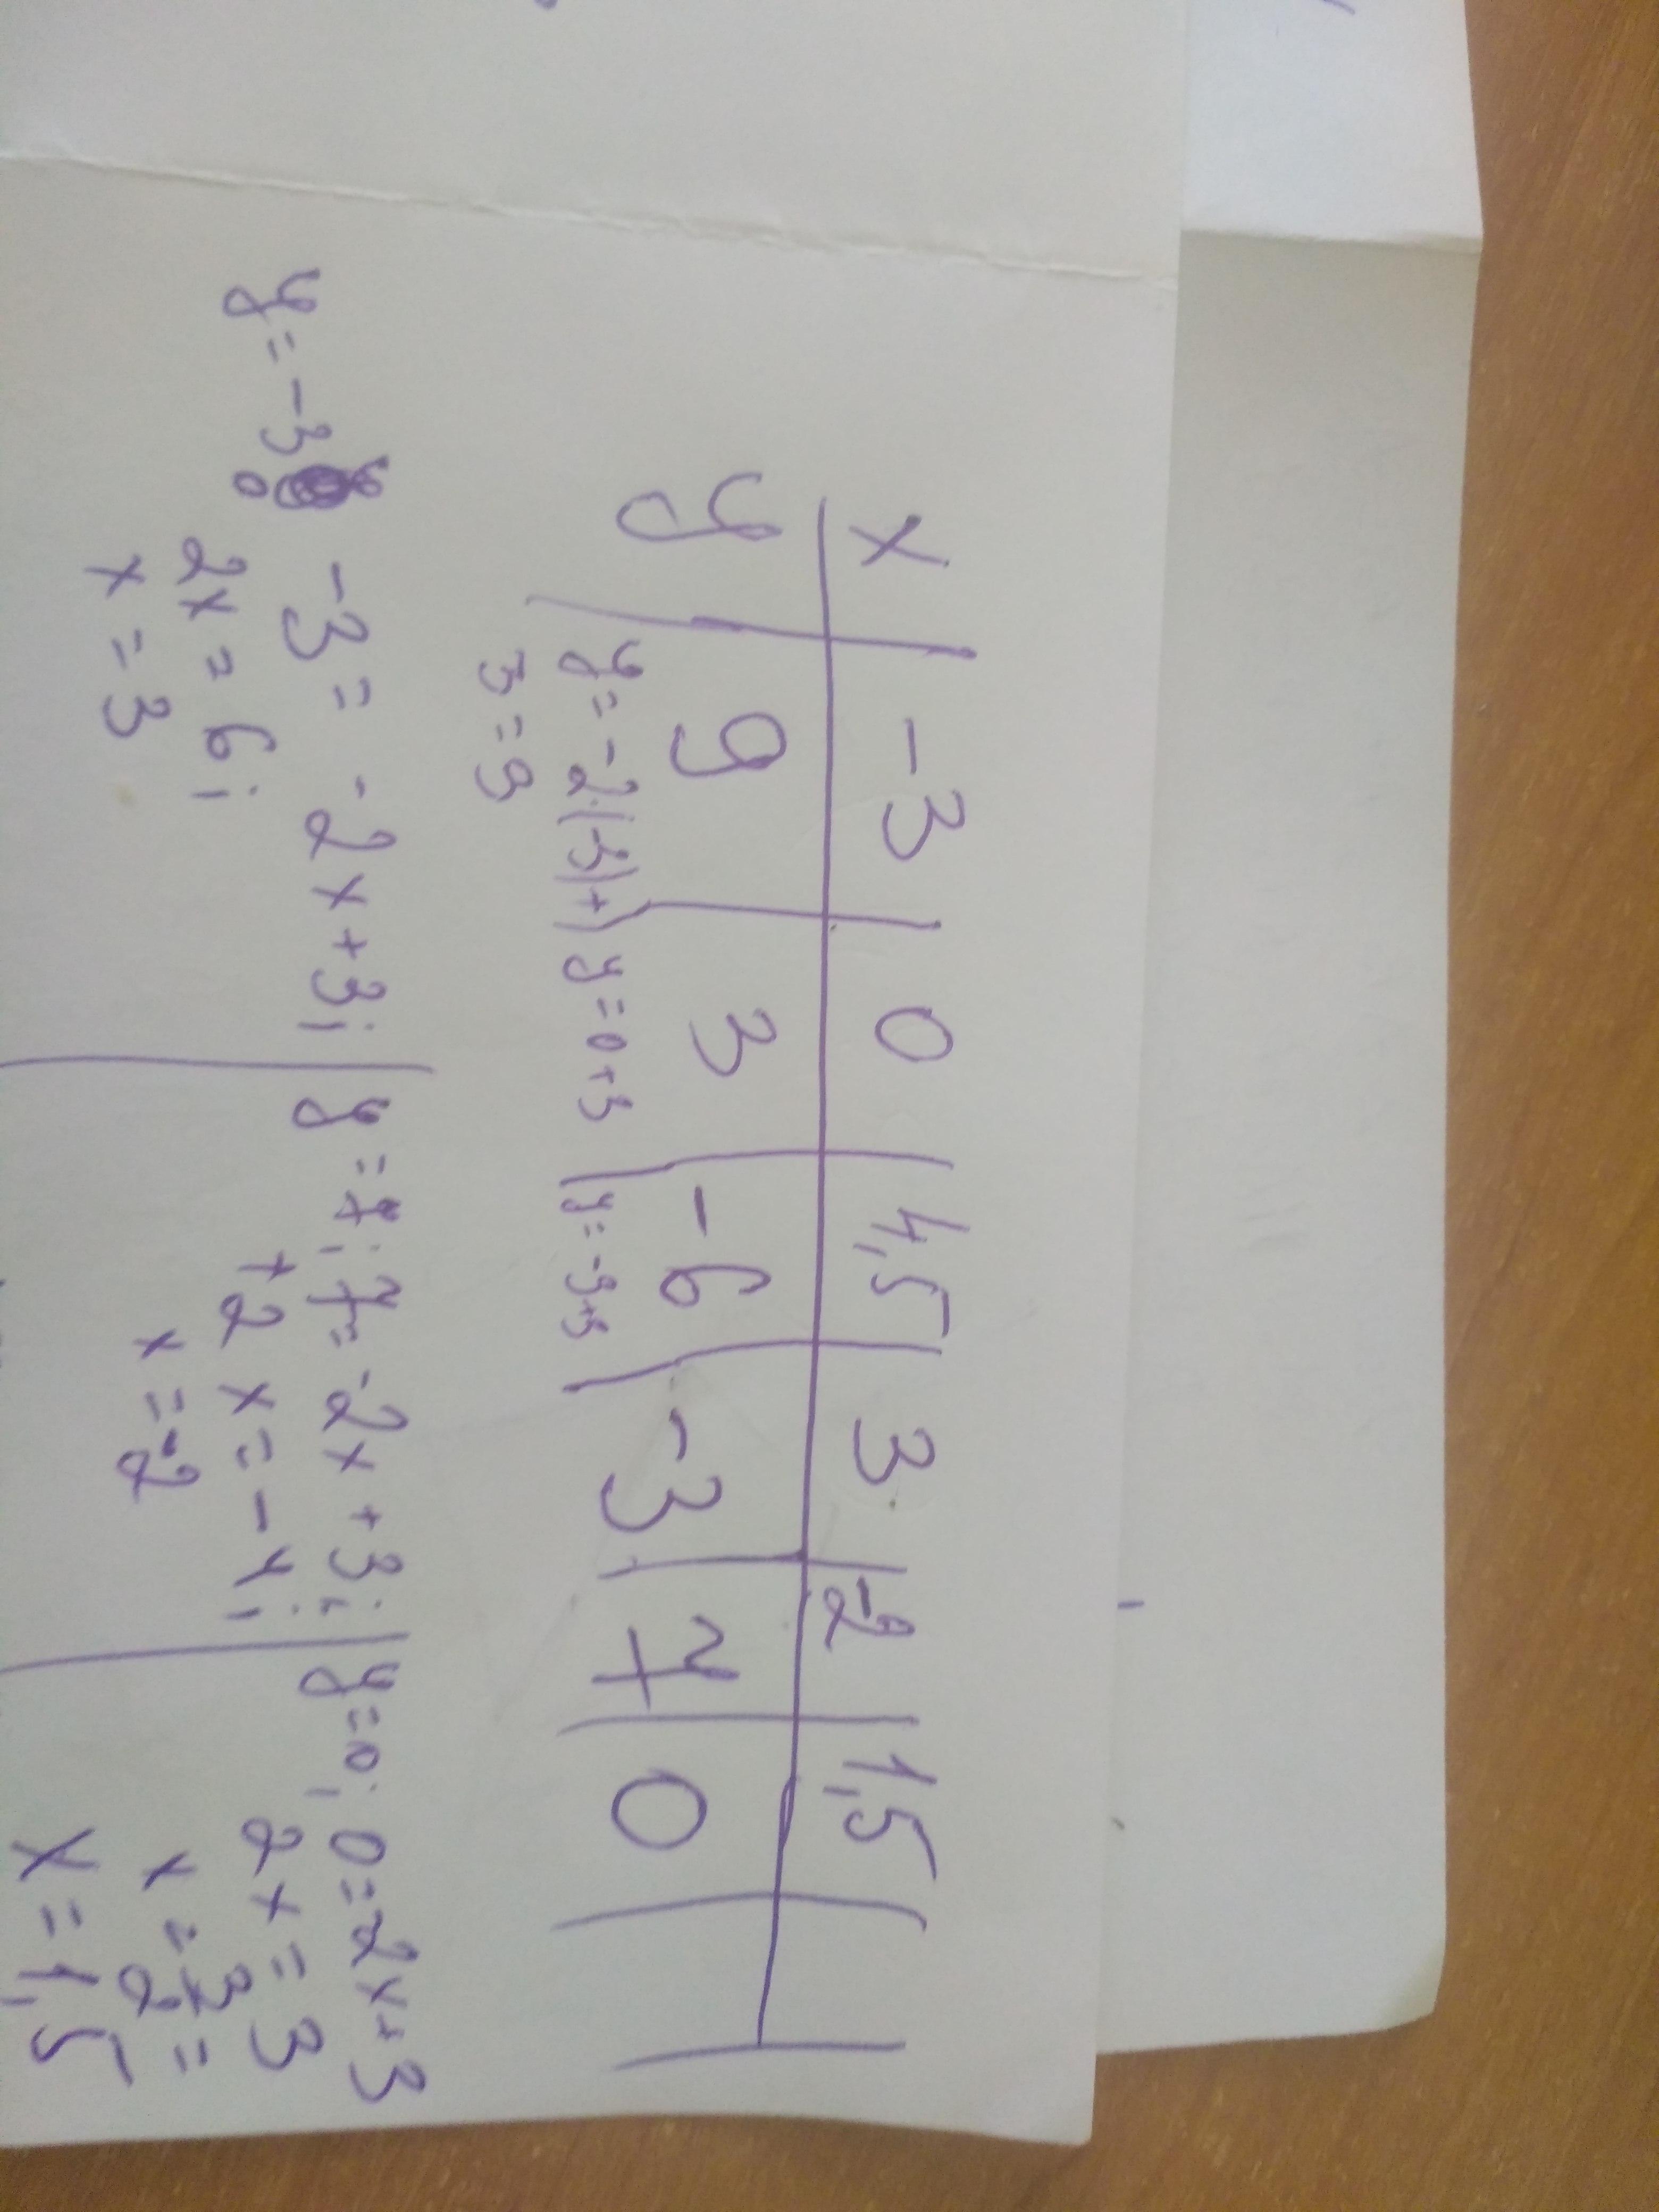 x | -3 | 0 | 4,5 | 3 | -2 | 1,5 |
y | 9 | 3 | -6 | -3 | 7 | 0 |
y = -2·(-3)+ | y = 0+3 | y = -9+3 |
3 = 9
y = -3; -3 = -2x+3;
2x = 6;
x = 3
y = 7; 7 = -2x+3;
+2x = -4;
x = -2
y = 0; 0 = -2x+3
2x = 3
x = 3/2 =
x = 1,5